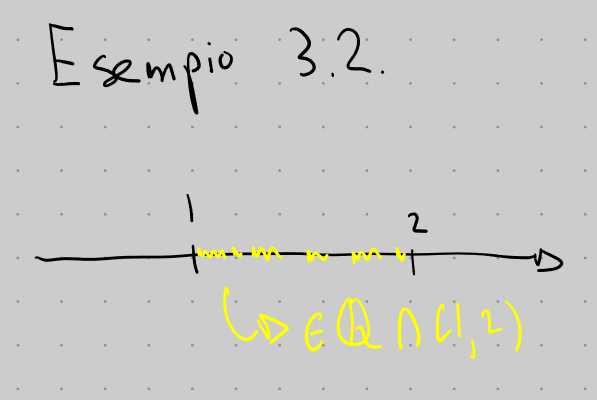 Esempio 3.2.
1 2
∈ ℚ ∩ (1,2)